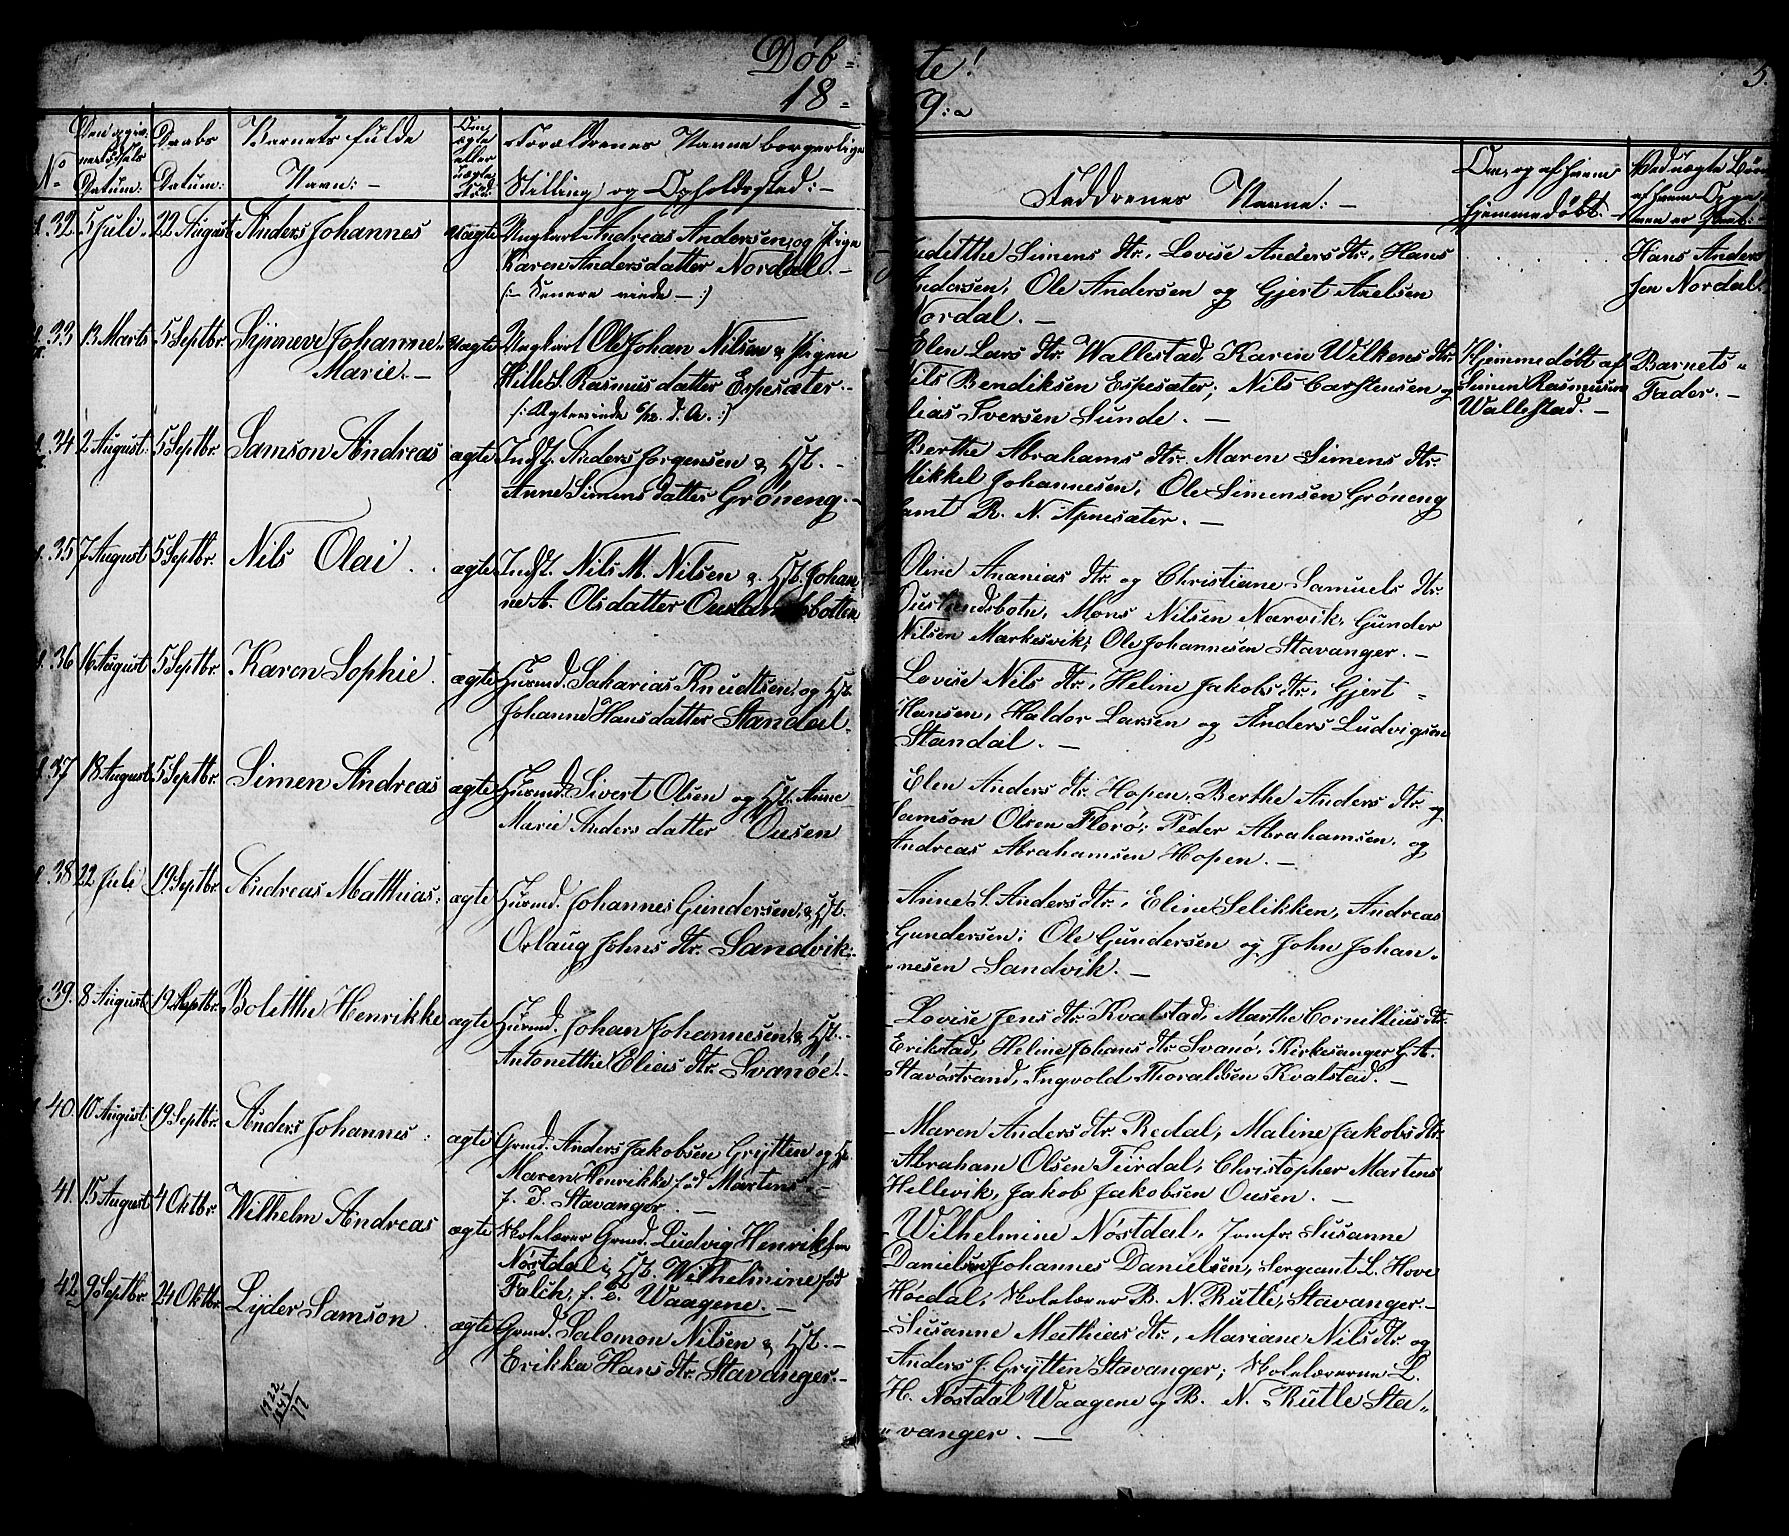 Döb-
te!
5.
18-
9:
No
Den opgiv. Födsels Datum:
Daabs Datum:
Barnets fulde Navn: -
Om ægte eller uægte Född:
Forældrenes Navne borgerlige Stilling og Opholdssted: -
Faddrenes Navne: -
Om, og af hvem hjemmedöbt. -
Ved uægte Börn af hvem Opga
32. 5 Juli. 22 August Anders Johannes uægte Ungkarl Andreas Andersen, og Pige
Karen Andersdatter Nordal. -
/:- Senere viede -:/
Simens dtr. Lovise Anders dtr. Hans
Andersen, Ole Andersen og Gjert Axelsen
Nordal. -
Hans Anders
sen Nordal.
33 13 Marts 5 Septbr. Synneve Johanne
Marie. -
uægte Ungkarl Ole Johan Nilsen & Pigen
Rasmusdatter Espesæter. -
Elen Lars dtr. Wallestad, Karen Wilkens dtr.
Nils Bendiksen Espesæter; Nils Carstensen og
Elias Iversen Sunde. -
Hjemmedöbt af
Simen Rasmusen
Wallestad. -
Barnets
Fader. -
34 2 August. 5 Septbr. Samson Andreas ægte Indst. Anders Jörgensen & Hst. -
Anne Simens datter Gröneng. -
Berthe Abrahams dtr. Maren Simens dtr.
Mikkel Johannesen, Ole Simensen Gröneng
samt R. N. Apnesæter. -
35 7 August 5 Septbr. Nils Olai. ægte Indst. Nils M. Nilsen & Hst. Johan
ne A. Olsdatter Ouslandsbotten
Oline Ananias dtr. og Christiane Samuels dtr.
Ouslandsbotn, Mons Nilsen Narvik, Gunder
Nilsen Markesvik; Ole Johannesen Stavanger. -
36 16 August 5 Septbr. Karen Sophie. ægte Husmd. Sakarias Knudtsen, og Hst.
Johanne Hansdatter Standal.
Lovise Nils dtr. Heline Jakobs dtr. Gjert
Hansen, Haldor Larsen og Anders Ludvigsen
Standal. -
37 18 August 5 Septbr. Simen Andreas ægte Husmd. Sivert Olsen og Hst. Anne
Marie Anders datter Ousen
Elen Anders dtr. Hopen, Berthe Anders dtr. og
Samson Olsen Florö; Peder Abrahamsen, og
Andreas Abrahamsen Hopen. -
38 22 Juli 19 Septbr. Andreas Matthias. ægte Husmd. Johannes Gundersen, & Hst.
Orlaug Johns dtr. Sandvik.
Anne S. Anders dtr. Eline Selikken, Andreas
Gundersen; Ole Gundersen og John Johan-
nesen Sandvik. -
39. 8 August 19 Septbr. Bolethe Henrikke ægte Husmd. Johan Johannesen, & Hst.
Antonetthe Elias dtr. Svanöe. -
Lovise Jens dtr. Kvalstad, Marthe Cornillius dtr.
Erikstad, Heline Johans dtr. Svanö, Kirkesanger G. A.
Stavöstrand, Ingvold Thoraldsen Kvalstad. -
40. 10 August 19 Septbr. Anders Johannes. ægte Grmd. Anders Jakobsen Grytten og Hst.
Maren Henrikke föd Martens. -
f. T. Stavanger. -
Maren Anders dtr. Redal, Maline Jakobs dtr.
Abraham Olsen Tuirdal, Christopher Martens
Hellevik, Jakob Jakobsen Ousen. -
41. 15 August 4 Oktbr. Wilhelm Andreas ægte Skolelærer Grmd. Ludvig Henriksen
Nöstdal & Hst. Wilhelmine föd
Falch, f. T. Waagene. -
Wilhelmine Nöstdal, Jomfr. Susanne
Danielsen Johannes Danielsen, Sergeant L. Hove
Höidal, Skolelærer B. N. Rutle, Stavanger. -
42 9 Septbr. 24 Oktbr. Lyder Samson. ægte Grmd. Salomon Nilsen & Hst. -
Erikka Hans dtr. Stavanger. -
Susanne Mathias dtr., Mariane Nils dtr. og
Anders J. Grytten Stavanger; Skolelærerne L.
H. Nöstdal Waagene og B. N. Rutle Sta-
vanger. -
1922
1845
77